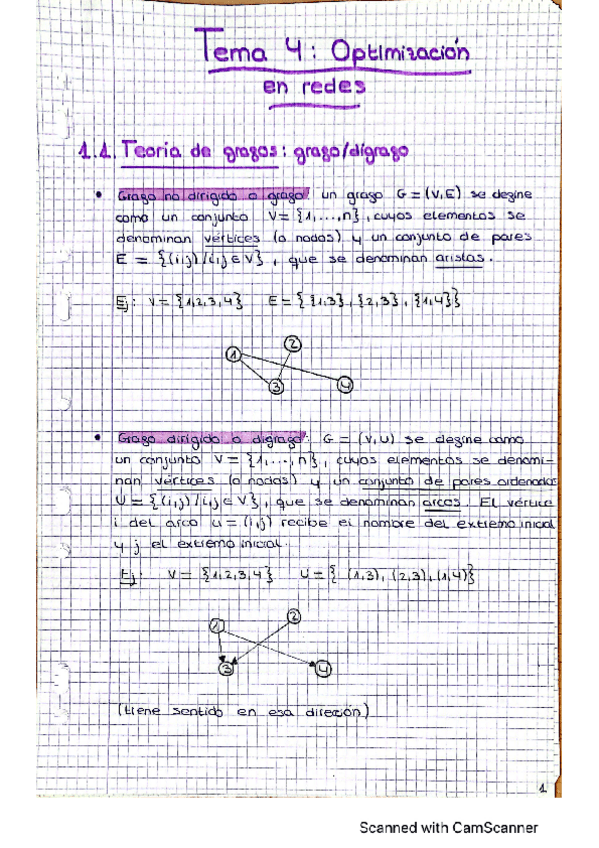 Tema 4: Optimización
en redes
1.1. Teoría de grafos: grafo/digrafo
• Grafo no dirigido o grafo: un grafo G = (V,E) se define
como un conjunto V = {1,...,n}, cuyos elementos se
denominan vértices (o nodos) y un conjunto de pares
E = {(i,j)/i,j ∈ V}, que se denominan aristas.
Ej: V = {1,2,3,4} E = { {1,3}, {2,3}, {1,4}}
1
2
3
4
• Grafo dirigido o digrafo: G = (V,U) se define como
un conjunto V = {1,...,n}, cuyos elementos se denomi-
nan vértices (o nodos) y un conjunto de pares ordenados
U = {(i,j)/i,j ∈ V}, que se denominan arcos. El vértice
i del arco u = (i,j) recibe el nombre del extremo inicial
y j el extremo inicial.
Ej: V = {1,2,3,4} U = { (1,3), (2,3), (1,4)}
1
2
3
4
(tiene sentido en esa direción)
1
Scanned with CamScanner